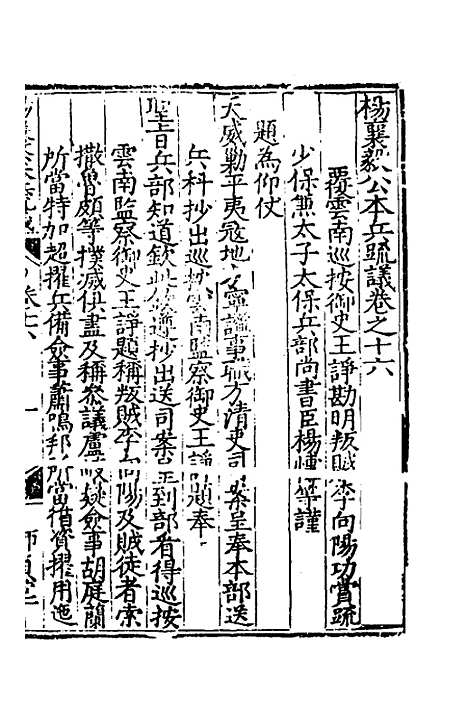 楊襄毅公本兵疏議卷之十六
覆雲南巡按御史王諍勘明叛賊李向陽功賞疏
少保兼太子太保兵部尚書臣楊 等謹
題為仰仗
天威勦平夷寇地方寧謐事職方清吏司案呈奉本部送
兵科抄出巡按雲南監察御史王諍題奉
聖旨兵部知道欽此欽遵抄出送司案呈到部看得巡按
雲南監察御史王諍題稱叛賊李向陽及賊徒者索
撒魯頗等撲滅俱盡及稱叅議盧 僉事胡庭蘭
所當特加超擢兵備僉事蕭鳴邦所當循資擢用迤